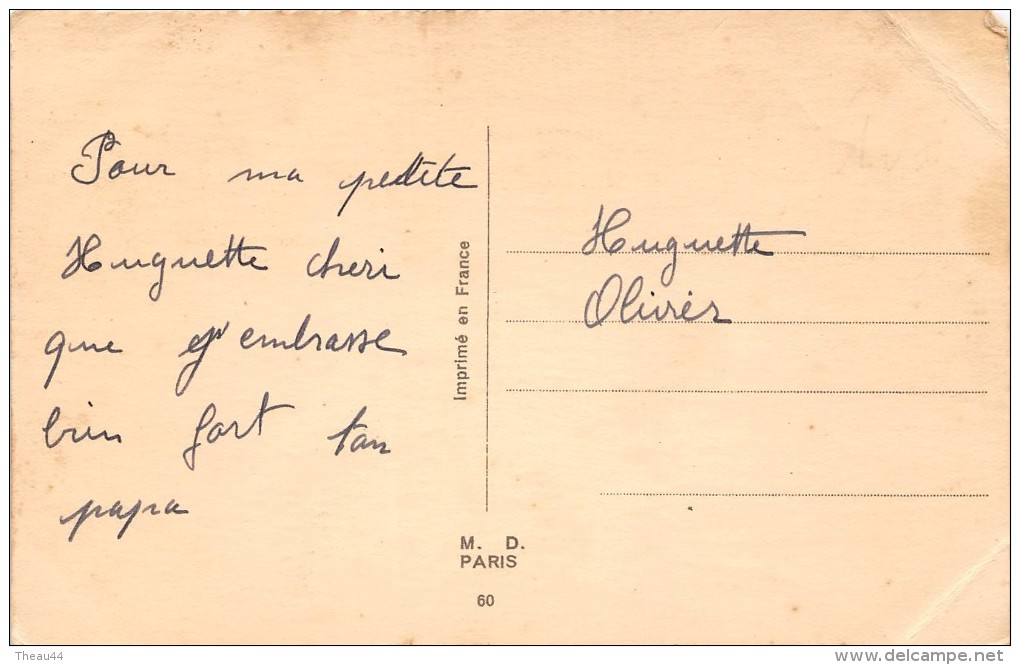 Pour ma petite
Huguette cheri
que j'embrasse
bien fort ton
papa
Imprimé en France
Huguette
Olivier
M. D.
PARIS
60
Theau44
delcampe.net